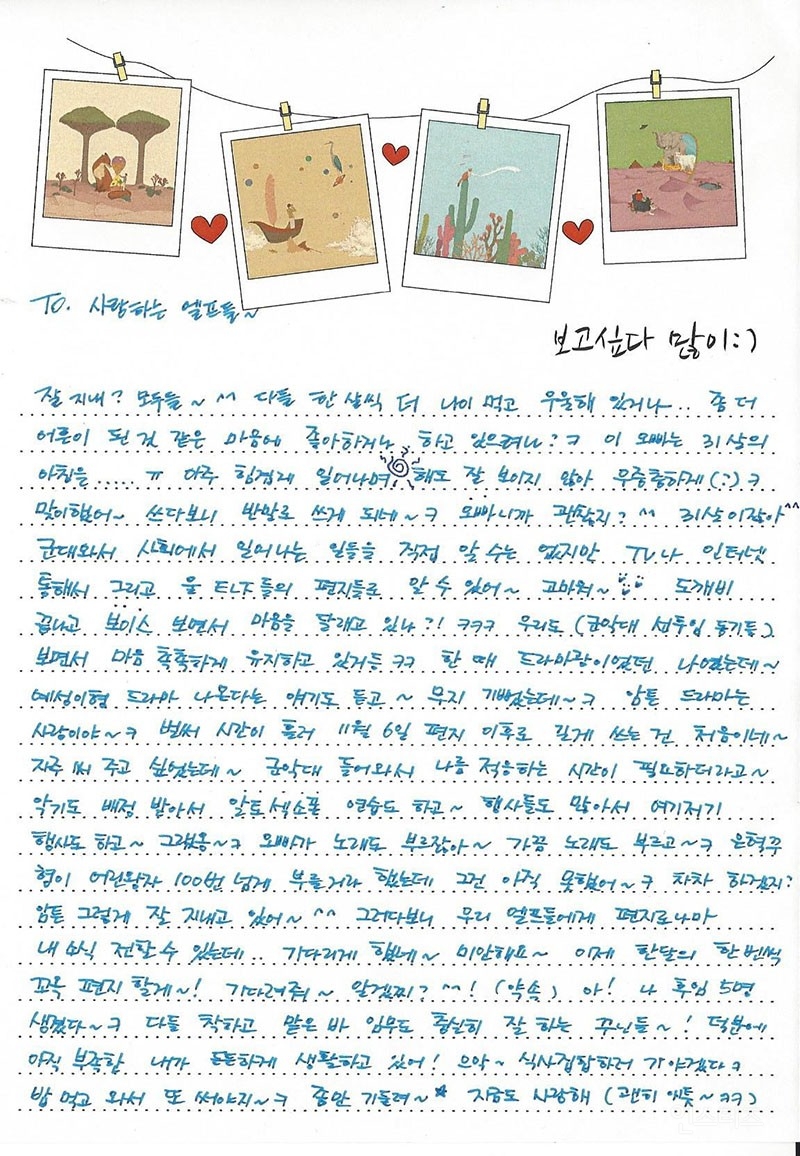 To. 사랑하는 엘프들~
보고싶다 많이:)
잘 지내? 모두들~ ^^ 다들 한 살씩 더 나이 먹고 우울해 있거나.. 좀 더
어른이 된 것 같은 마음에 좋아하거나 하고 있으려나? ㅋ 이 오빠는 31살의
아침을..... ㅠ 아주 힘겹게 일어나며 해도 잘 보이지 않아 우중충하게(:) ㅋ
맞이했어~ 쓰다보니 반말로 쓰게 되네~ㅋ 오빠니까 괜찮지? ^^ 31살이잖아^^
군대와서 사회에서 일어나는 일들을 직접 알 수는 없지만 TV나 인터넷
통해서 그리고 울 ELF들의 편지들로 알 수 있어~ 고마워~ 도깨비
끝나고 보이스 보면서 마음을 달래고 있나?! ㅋㅋㅋ 우리도 (군악대 선후임 동기들)
보면서 마음 촉촉하게 유지하고 있거든 ㅋㅋ 한 때 드라마광이었던 나였는데~
예성이형 드라마 나온다는 얘기도 듣고~ 무지 기뻤는데~ㅋ 암튼 드라마는
사랑이야~ㅋ 벌써 시간이 흘러 11월 6일 편지 이후로 길게 쓰는 건 처음이네~
자주 써 주고 싶었는데~ 군악대 들어와서 나름 적응하는 시간이 필요하더라고~
악기도 배정 받아서 알토색소폰 연습도 하고~ 행사들도 많아서 여기저기
행사도 하고~ 그랬옹~ㅋ 오빠가 노래도 부르잖아~ 가끔 노래도 부르고~ㅋ 은혁쭈
형이 어린왕자 100번 넘게 부를거라 했는데 그건 아직 못했어~ㅋ 차차 하겠지?
암튼 그렇게 잘 지내고 있어~ ^^ 그러다보니 우리 엘프들에게 편지로나마
내 소식 전할 수 있는데.. 기다리게 했네~ 미안해요~ 이제 한달의 한 번씩
꼬옥 편지 할게~! 기다려줘~ 알겠찌? ^^! (약속) 아! 나 후임 5명
생겼다~ㅋ 다들 착하고 맡은 바 임무도 충실히 잘 하는 꾸닌들~! 덕분에
아직 부족한 내가 든든하게 생활하고 있어! 으악~ 식사집합하러 가야겠다ㅋ
밥 먹고 와서 또 써야지~ㅋ 좀만 기둘려~ 지금도 사랑해 (괜히 애틋~ㅋㅋ)